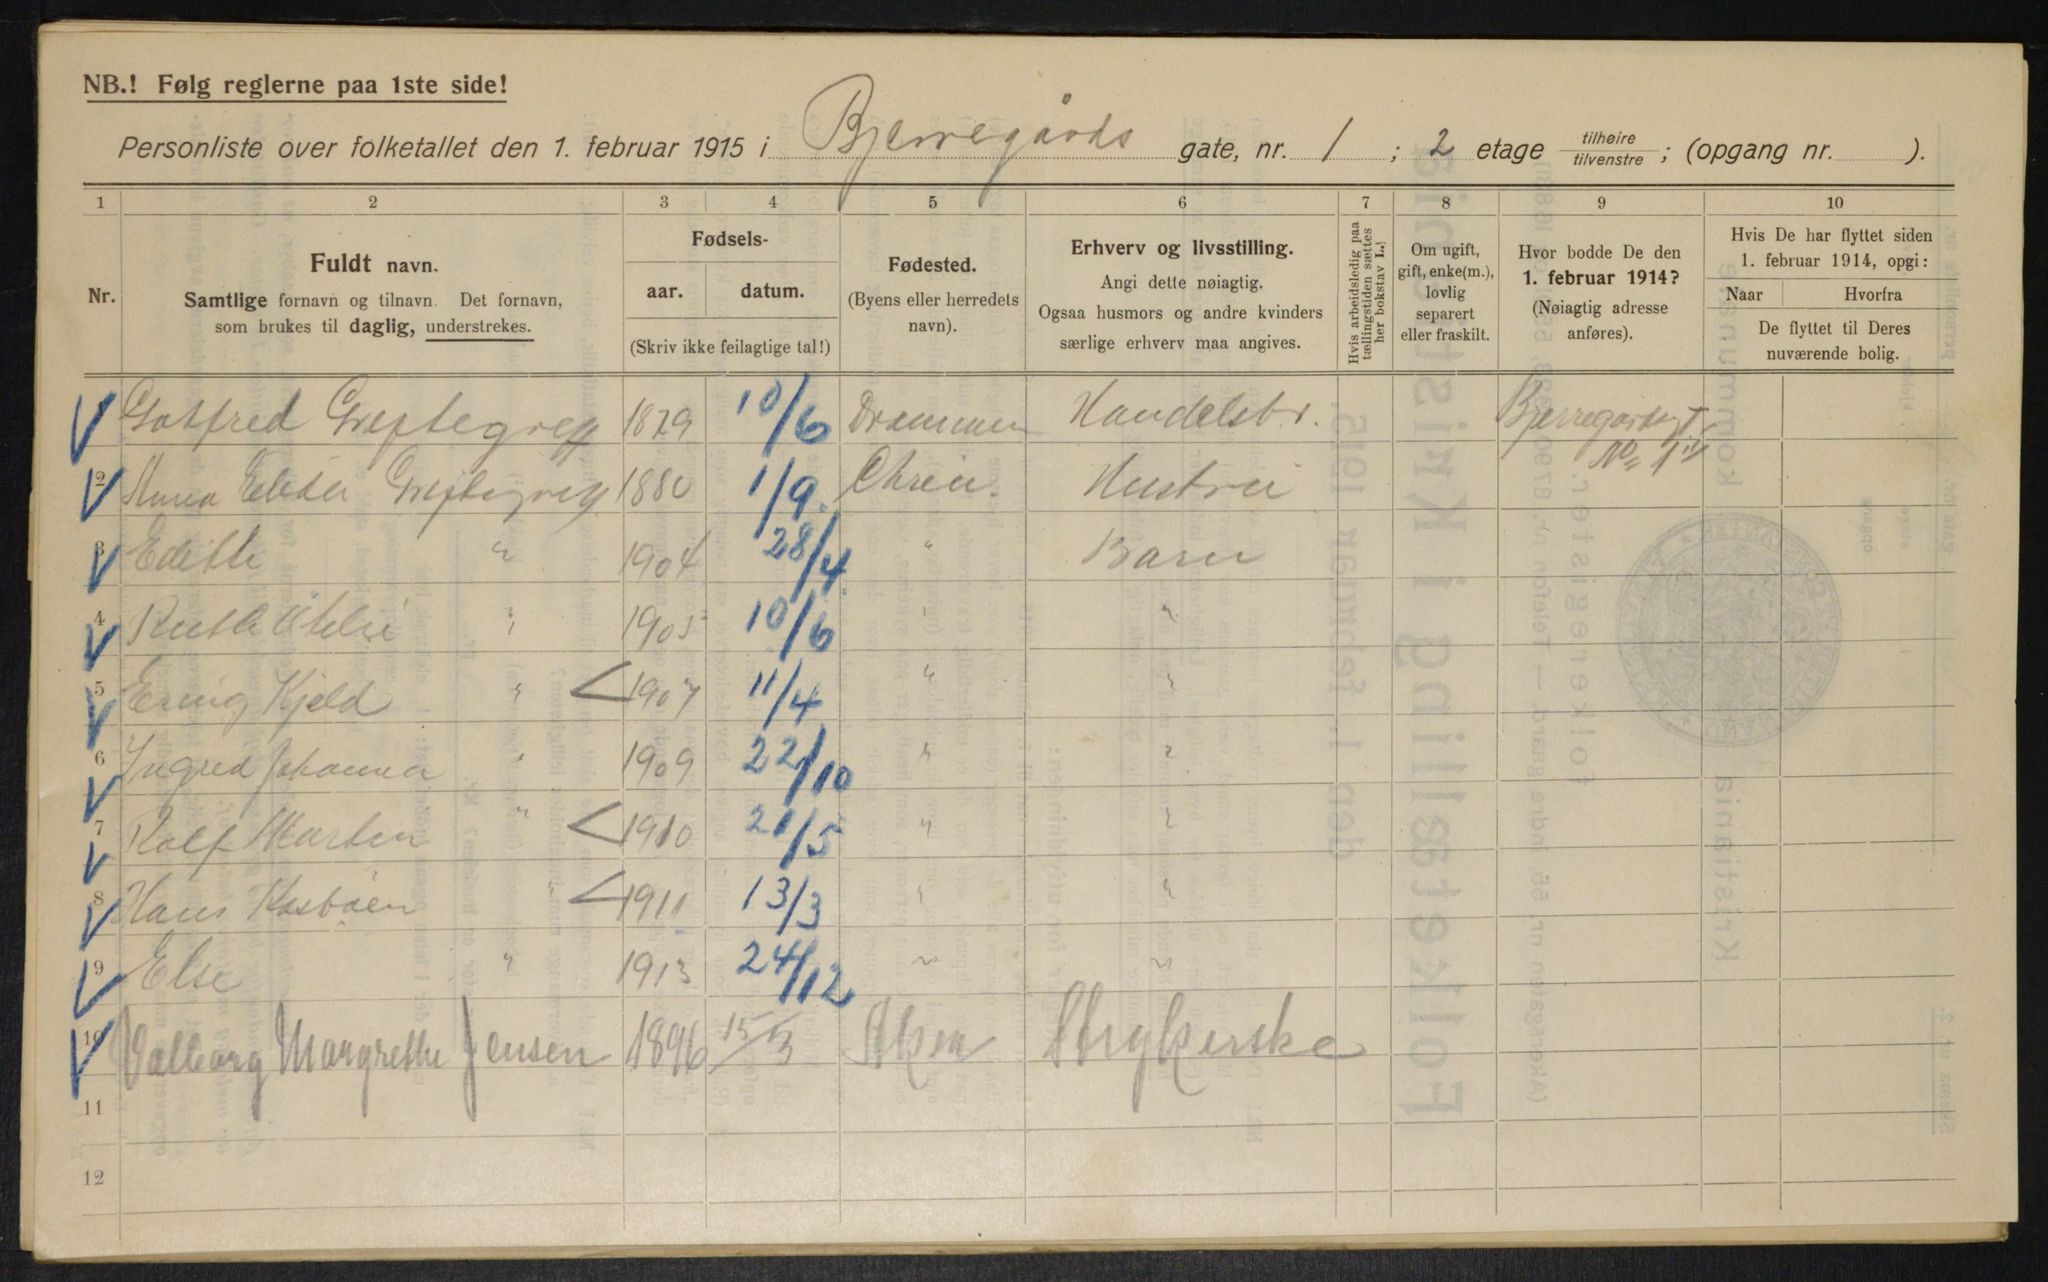 NB.! Følg reglerne paa 1ste side!
Personliste over folketallet den 1. februar 1915 i Bjerregårds gate, nr. 1 ; 2 etage tilhøire tilvenstre ; (opgang nr. ).
1 2 3 4 5 6 7 8 9 10
Nr.
Fuldt navn.
Samtlige fornavn og tilnavn. Det fornavn,
som brukes til daglig, understrekes.
Fødsels-
aar. datum.
(Skriv ikke feilagtige tal!)
Fødested.
(Byens eller herredets
navn).
Erhverv og livsstilling.
Angi dette nøiagtig.
Ogsaa husmors og andre kvinders
særlige erhverv maa angives.
Hvis arbeidsledig paa
tællingstiden sættes
her bokstav L.
Om ugift,
gift, enke(m.),
lovlig
separert
eller fraskilt.
Hvor bodde De den
1. februar 1914?
(Nøiagtig adresse
anføres).
Hvis De har flyttet siden
1. februar 1914, opgi:
Naar Hvorfra
De flyttet til Deres
nuværende bolig.
Gotfred Greftegreff 1879 10/6 Drammen Handelsbr. Bjerregårdsgt
No 1 IV
2 Anna Greftegreff 1880 1/9. Chria. Hustru
3 Edith " 1904 28/4 " Barn
4 Ruth " 1905 10/6 " "
5 Erling Kjeld " 1907 11/4 " "
6 Ingrid Johanna " 1909 22/10 " "
7 Rolf Martin " 1910 21/5 " "
8 Hans " 1911 13/3 " "
9 Else " 1913 24/12 " "
10 Valborg Margrethe Jensen 1896 15/3 Aker Strykerske
11
12